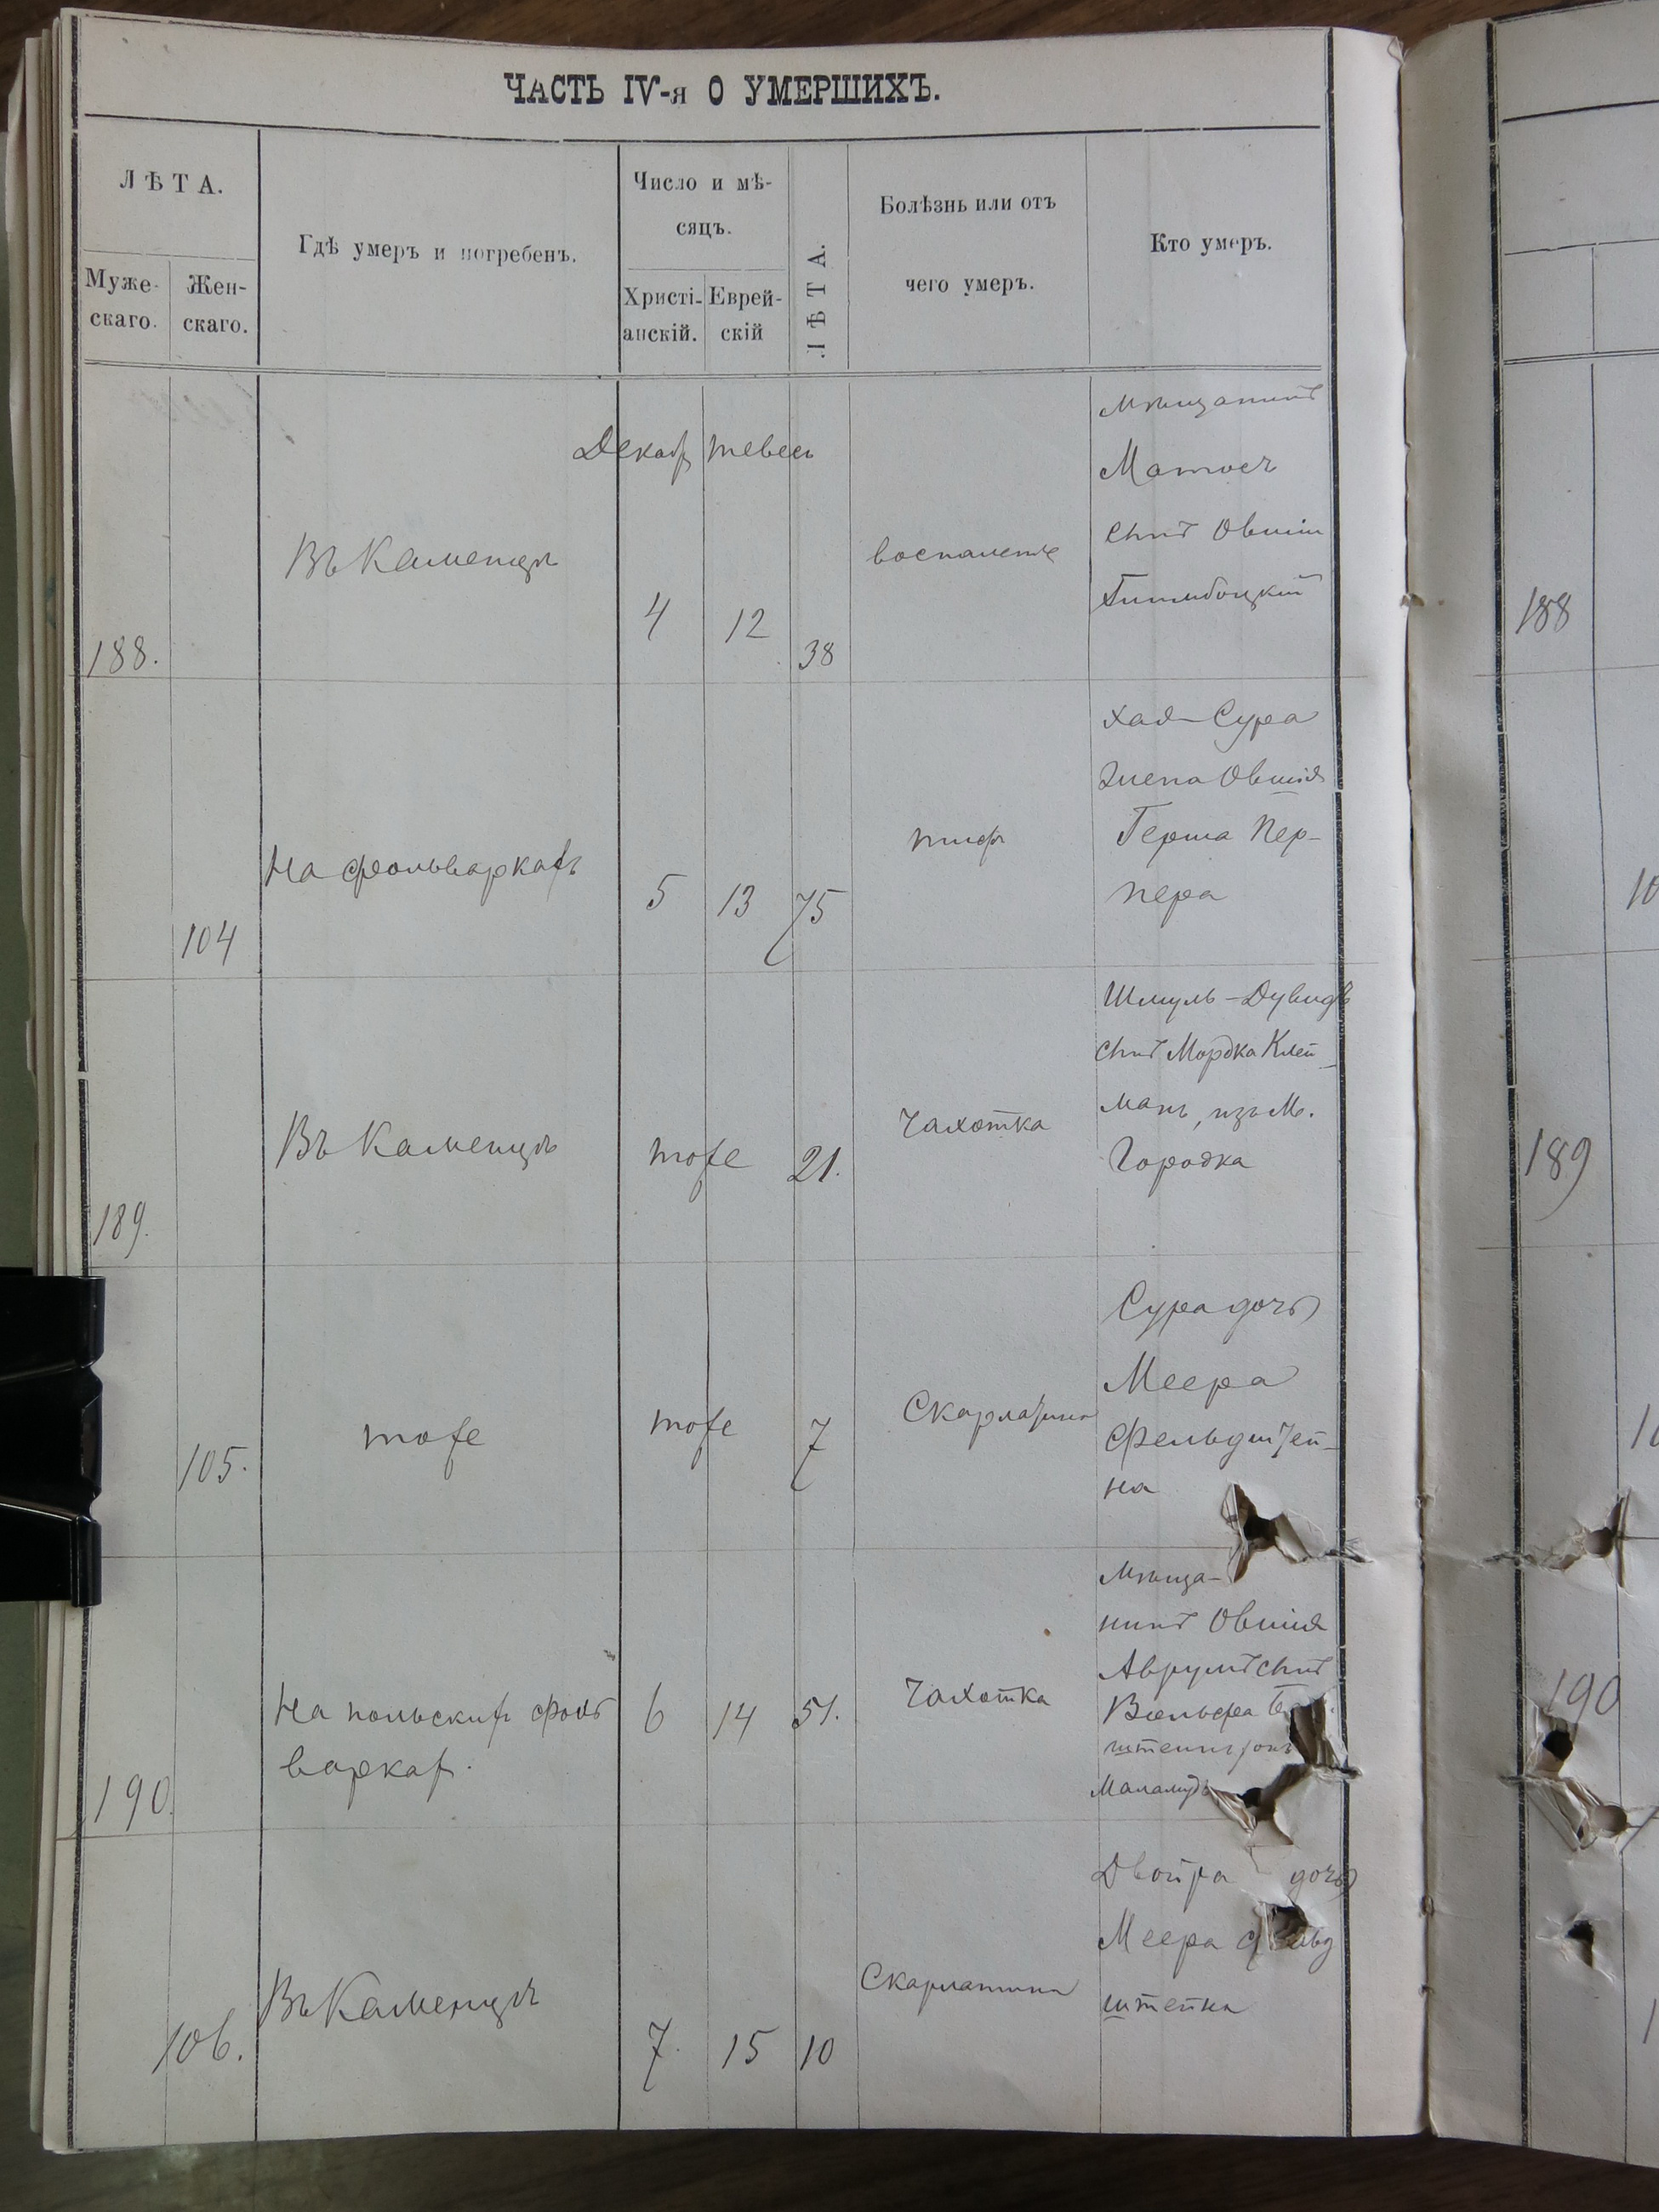 ЧАСТЬ IV-я О УМЕРШИХЪ.
ЛѢТА.
Муже-
скаго.
Жен-
скаго.
Гдѣ умеръ и погребенъ.
Число и мѣ-
сяцъ.
Христі-
анскій.
Еврей-
скій
ЛѢТА.
Болѣзнь или отъ
чего умеръ.
Кто умеръ.
188.
Въ Каменцѣ
Декабр
4
тевесъ
12
38
воспаленіе
мѣщанинъ
Матосъ
сынъ Овшіи
188
104
На фольваркахъ
5
13
75
тифъ
Хая-Сура
жена Овшія
Герша Пер-
пера
10
189.
Въ Каменцѣ
тоже
21.
Чахотка
Шмуль-Дувидъ
сынъ Мордка Клей-
манъ, изъ м.
Городка
189
105.
тоже
тоже
7
Скарлатина
Сура дочь
Меера
Фельдштей-
на
190.
На польских фоль
варках.
6
14
51.
Чахотка
Мѣща-
нинъ Овшія
Аврумъ сынъ
Вольфа
штейнъ онъ
Маламудъ
190
106.
Въ Каменцѣ
7.
15
10
Скарлатина
Двойра дочь
Меера
штейна